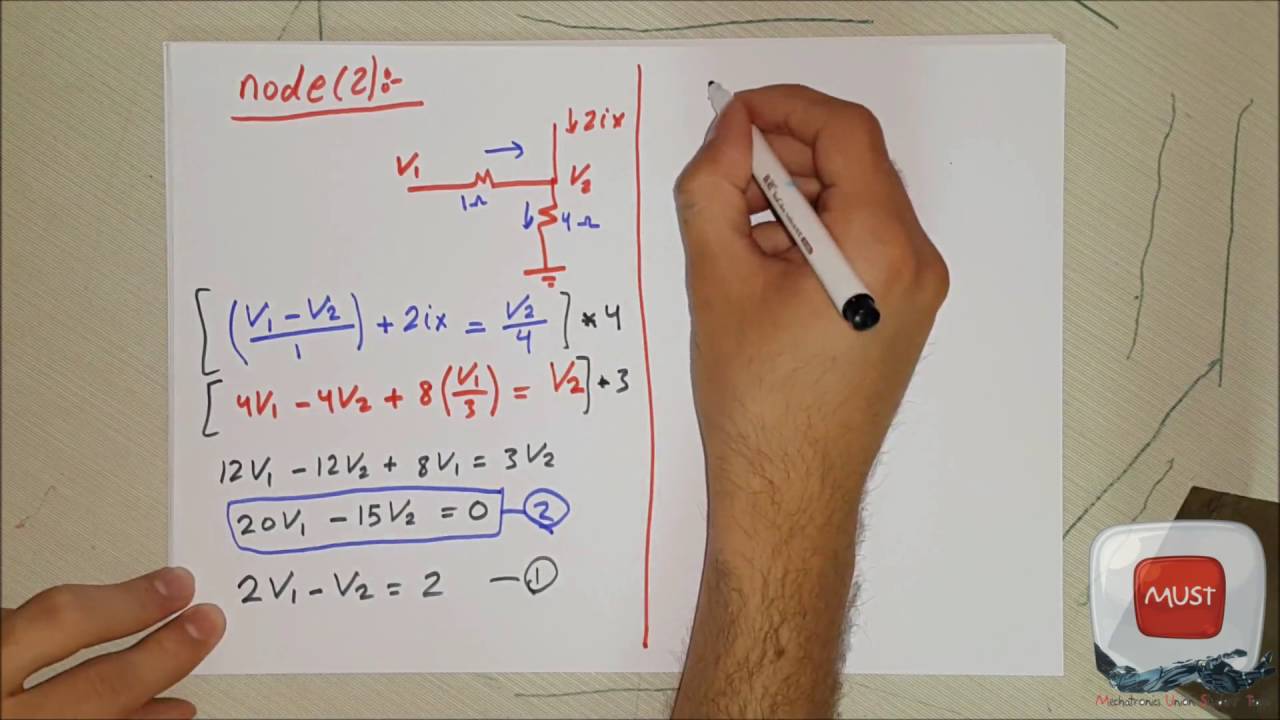 node(2):-
↓2ix
V₁ → V₂
1Ω ↓ 4Ω
[ ((V₁ - V₂)/1) + 2ix = V₂/4 ] * 4
[ 4V₁ - 4V₂ + 8(V₁/3) = V₂ ] * 3
12V₁ - 12V₂ + 8V₁ = 3V₂
20V₁ - 15V₂ = 0 - 2
2V₁ - V₂ = 2 - 1
MUST
Mechatronics Union